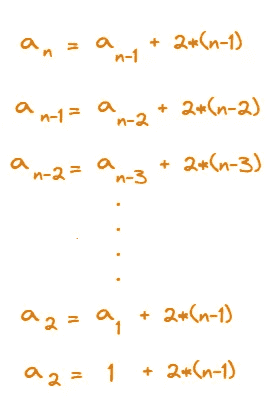 aₙ = aₙ₋₁ + 2*(n-1)
aₙ₋₁ = aₙ₋₂ + 2*(n-2)
aₙ₋₂ = aₙ₋₃ + 2*(n-3)
.
.
.
.
a₂ = a₁ + 2*(n-1)
a₂ = 1 + 2*(n-1)